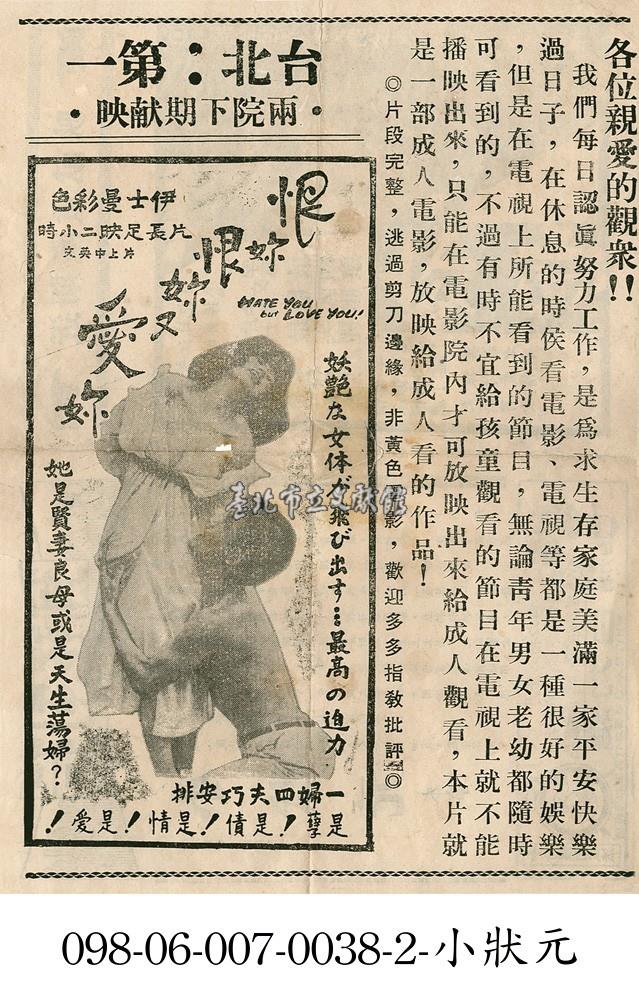 各位親愛的觀衆!!
我們每日認眞努力工作，是爲求生存家庭美滿一家平安快樂
過日子，在休息的時侯看電影、電視等都是一種很好的娛樂
，但是在電視上所能看到的節目，無論靑年男女老幼都隨時
可看到的，不過有時不宜給孩童觀看的節目在電視上就不能
播映出來，只能在電影院內才可放映出來給成人觀看，本片就
是一部成人電影，放映給成人看的作品！
◎片段完整，逃過剪刀邊緣，非黃色電影，歡迎多多指敎批評◎
台北：第一
•兩院下期献映•
伊士曼彩色
片長足映二小時
片上中英文
恨妳恨妳又愛妳
HATE YOU
but LOVE YOU!
妖艶な女体が飛び出す…最高の迫力
她是賢妻良母或是天生蕩婦？
一婦四夫巧安排
孽是！債是！情是！愛是！
臺北市立文獻館
098-06-007-0038-2-小狀元